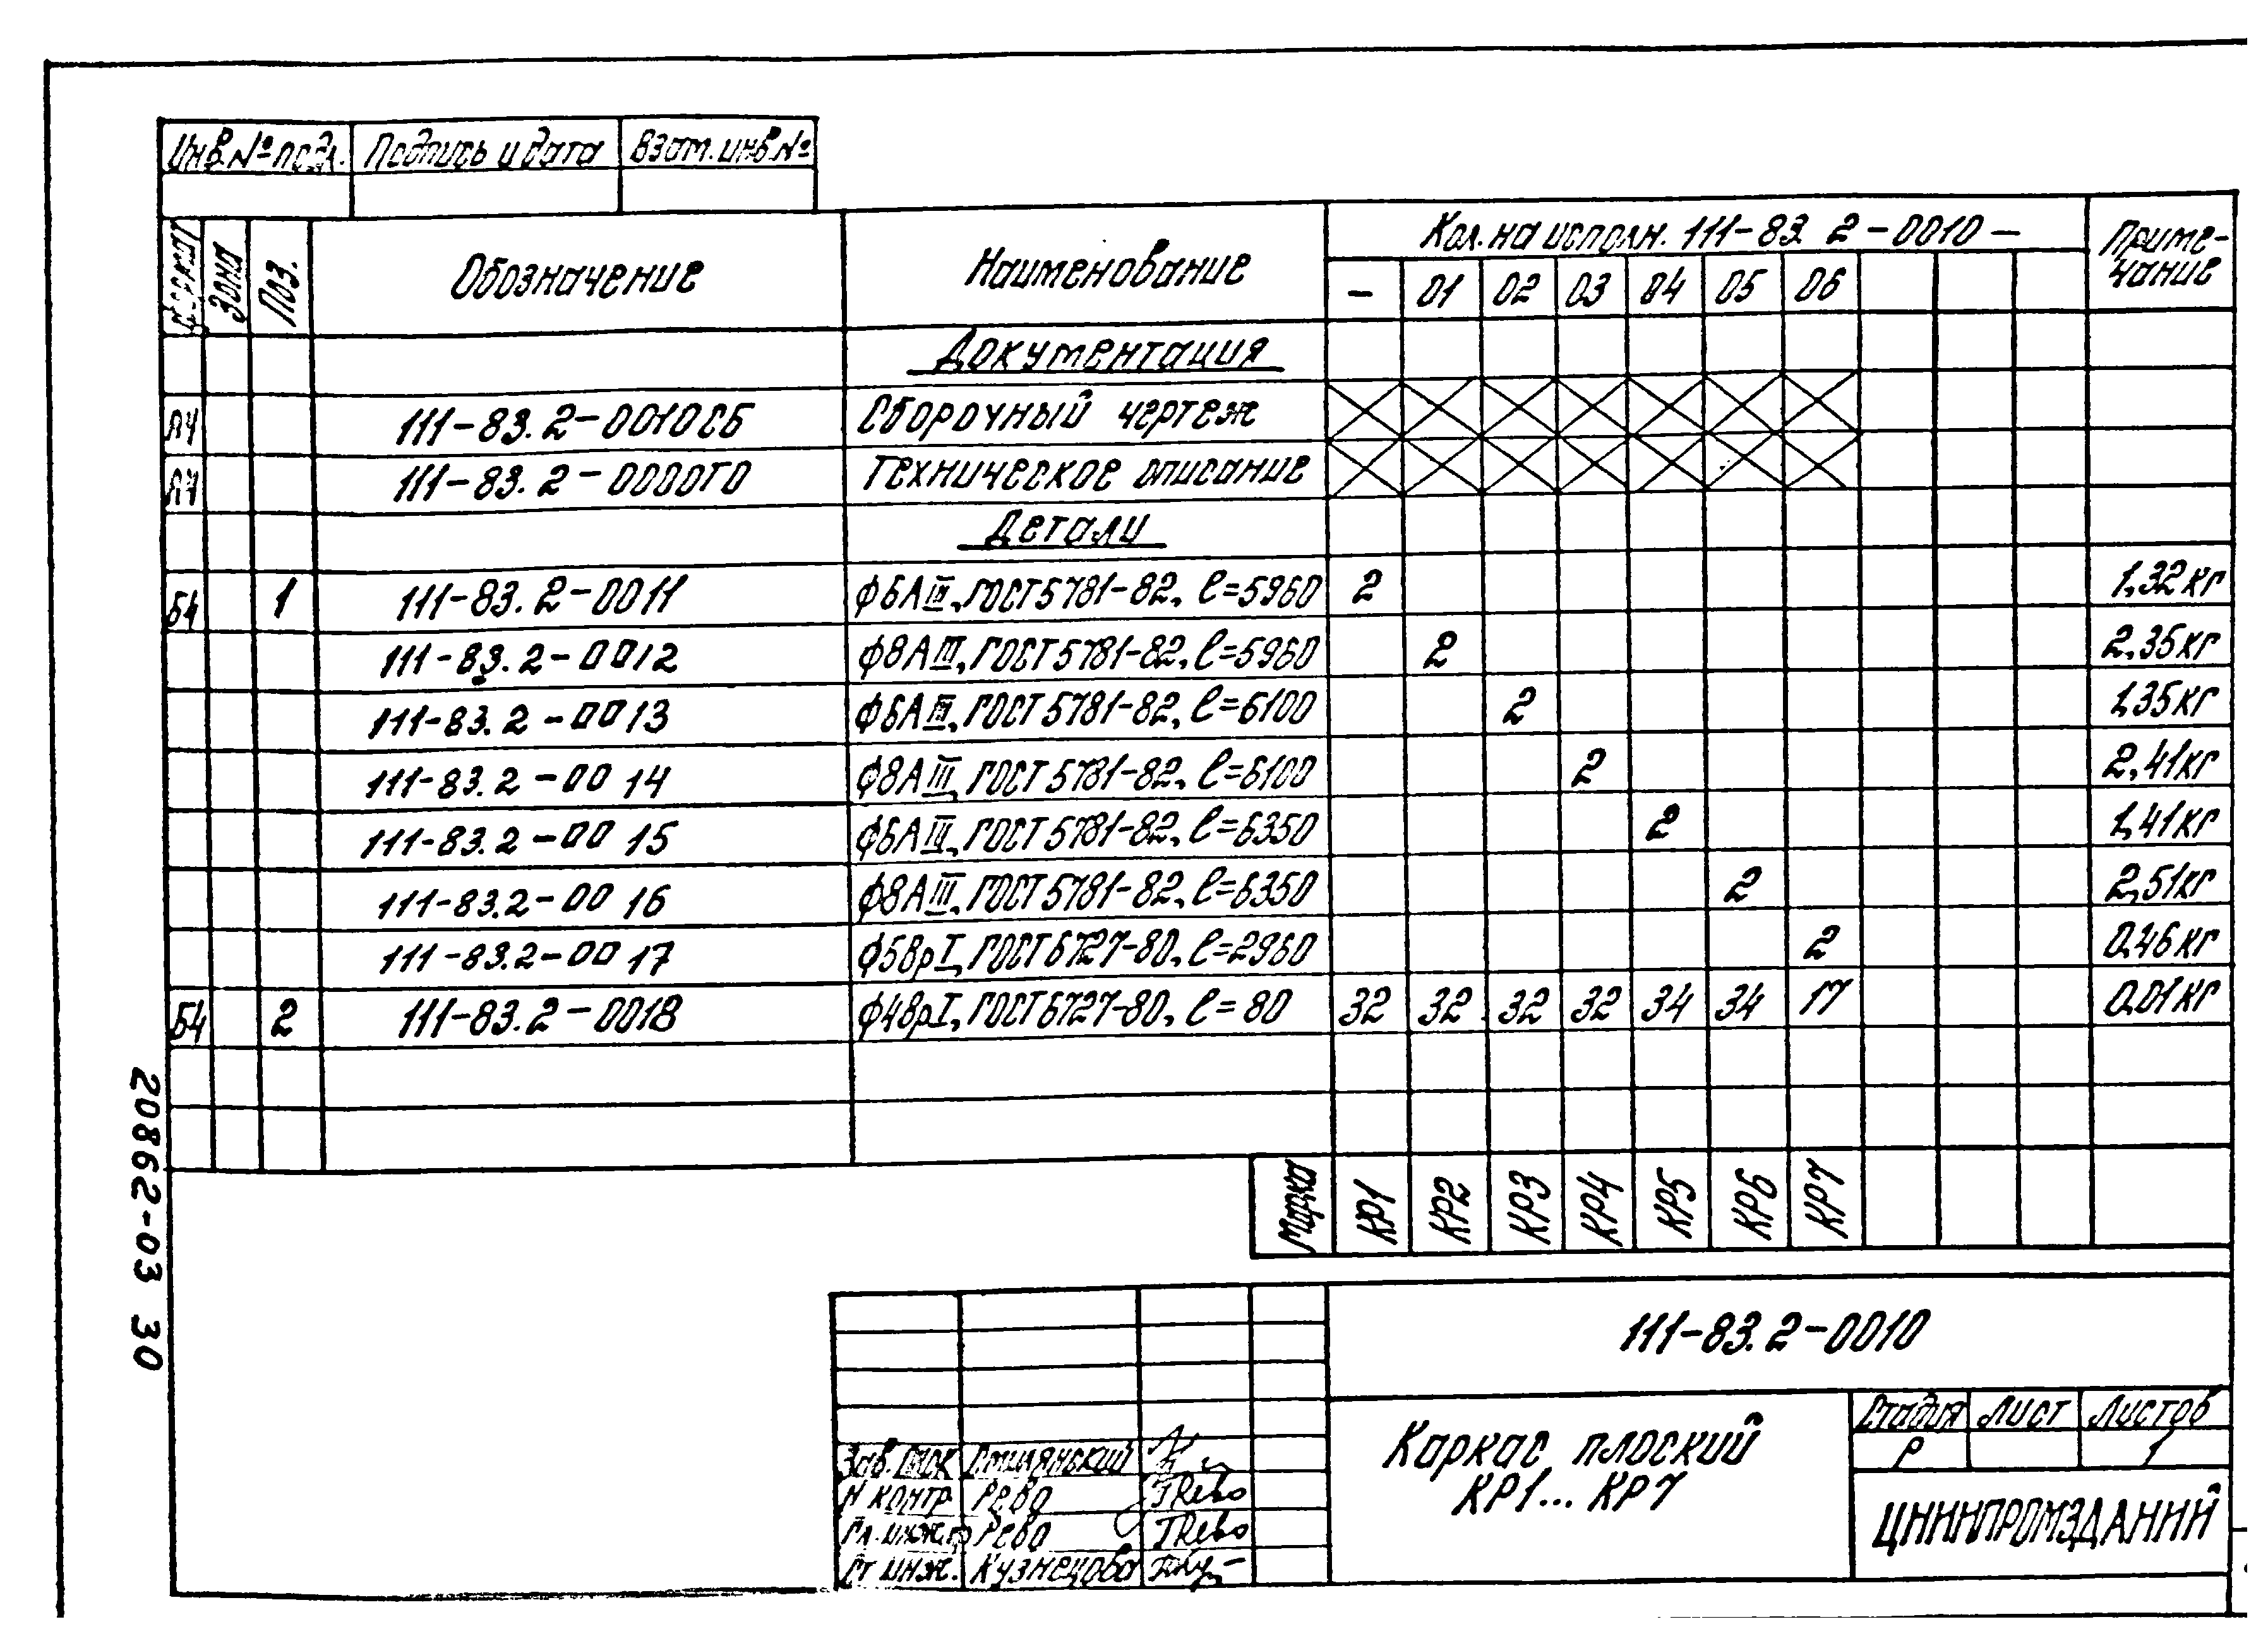 Инв.№ подл. Подпись и дата Взам. инв.№
Формат Зона Поз. Обозначение Наименование Кол. на исполн. 111-83.2-0010- Приме-
чание
- 01 02 03 04 05 06
Документация
А4 111-83.2-0010СБ Сборочный чертеж
А4 111-83.2-0000ТО Техническое описание
Детали
Б4 1 111-83.2-0011 ф6АIII, ГОСТ 5781-82, ℓ=5960 2 1,32кг
111-83.2-0012 ф8АIII, ГОСТ 5781-82, ℓ=5960 2 2,35кг
111-83.2-0013 ф6АIII, ГОСТ 5781-82, ℓ=6100 2 1,35кг
111-83.2-0014 ф8АIII, ГОСТ 5781-82, ℓ=6100 2 2,41кг
111-83.2-0015 ф6АIII, ГОСТ 5781-82, ℓ=6350 2 1,41кг
111-83.2-0016 ф8АIII, ГОСТ 5781-82, ℓ=6350 2 2,51кг
111-83.2-0017 ф5ВрI, ГОСТ 6727-80, ℓ=2960 2 0,46кг
Б4 2 111-83.2-0018 ф4ВрI, ГОСТ 6727-80, ℓ=80 32 32 32 32 34 34 17 0,01кг
Марка КР1 КР2 КР3 КР4 КР5 КР6 КР7
20862-03 30
111-83.2-0010
Каркас плоский
КР1... КР7
Стадия Лист Листов
Р 1
ЦНИИПРОМЗДАНИЙ
Зав.
Н контр Рева
Гл. инж.пр Рева
Ст инж. Кузнецова